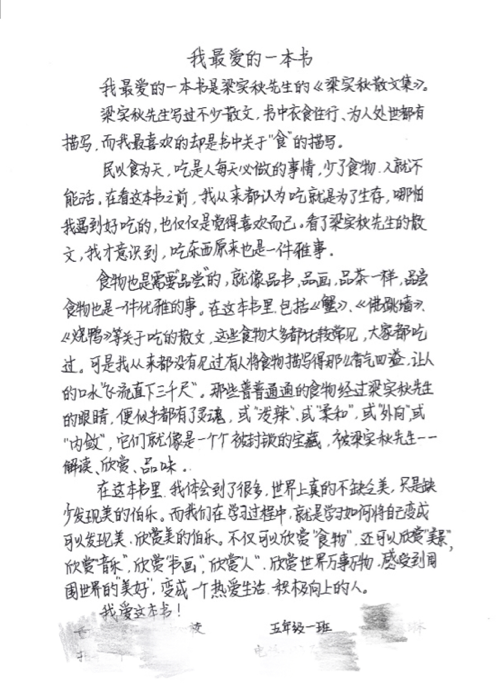 我最爱的一本书
我最爱的一本书是梁实秋先生的《梁实秋散文集》。
梁实秋先生写过不少散文，书中衣食住行、为人处世都有
描写，而我最喜欢的却是书中关于“食”的描写。
民以食为天，吃是人每天必做的事情，少了食物，人就不
能活。在看这本书之前，我从来都认为吃就是为了生存，哪怕
我遇到好吃的，也仅仅是觉得喜欢而已。看了梁实秋先生的散
文，我才意识到，吃东西原来也是一件雅事。
食物也是需要“品尝”的，就像品书，品画，品茶一样，品尝
食物也是一件优雅的事。在这本书里，包括《蟹》、《佛跳墙》、
《烧鸭》等关于吃的散文，这些食物大多都比较常见，大家都吃
过。可是我从来都没有见过有人将食物描写得那么香气四溢，让人
的口水“飞流直下三千尺”。那些普普通通的食物经过梁实秋先生
的眼睛，便似乎都有了灵魂，或“泼辣”、或“柔和”，或“外向”或
“内敛”，它们就像是一个个被封锁的宝藏，被梁实秋先生一一
解读、欣赏、品味。
在这本书里，我体会到了很多，世界上真的不缺乏美，只是缺
少发现美的伯乐。而我们在学习过程中，就是学习如何将自己变成
可以发现美、欣赏美的伯乐。不仅可以欣赏“食物”，还可以欣赏“美景”，
欣赏“音乐”，欣赏“书画”，欣赏“人”，欣赏世界万事万物，感受到周
围世界的“美好”，变成一个热爱生活，积极向上的人。
我爱这本书！
五年级一班